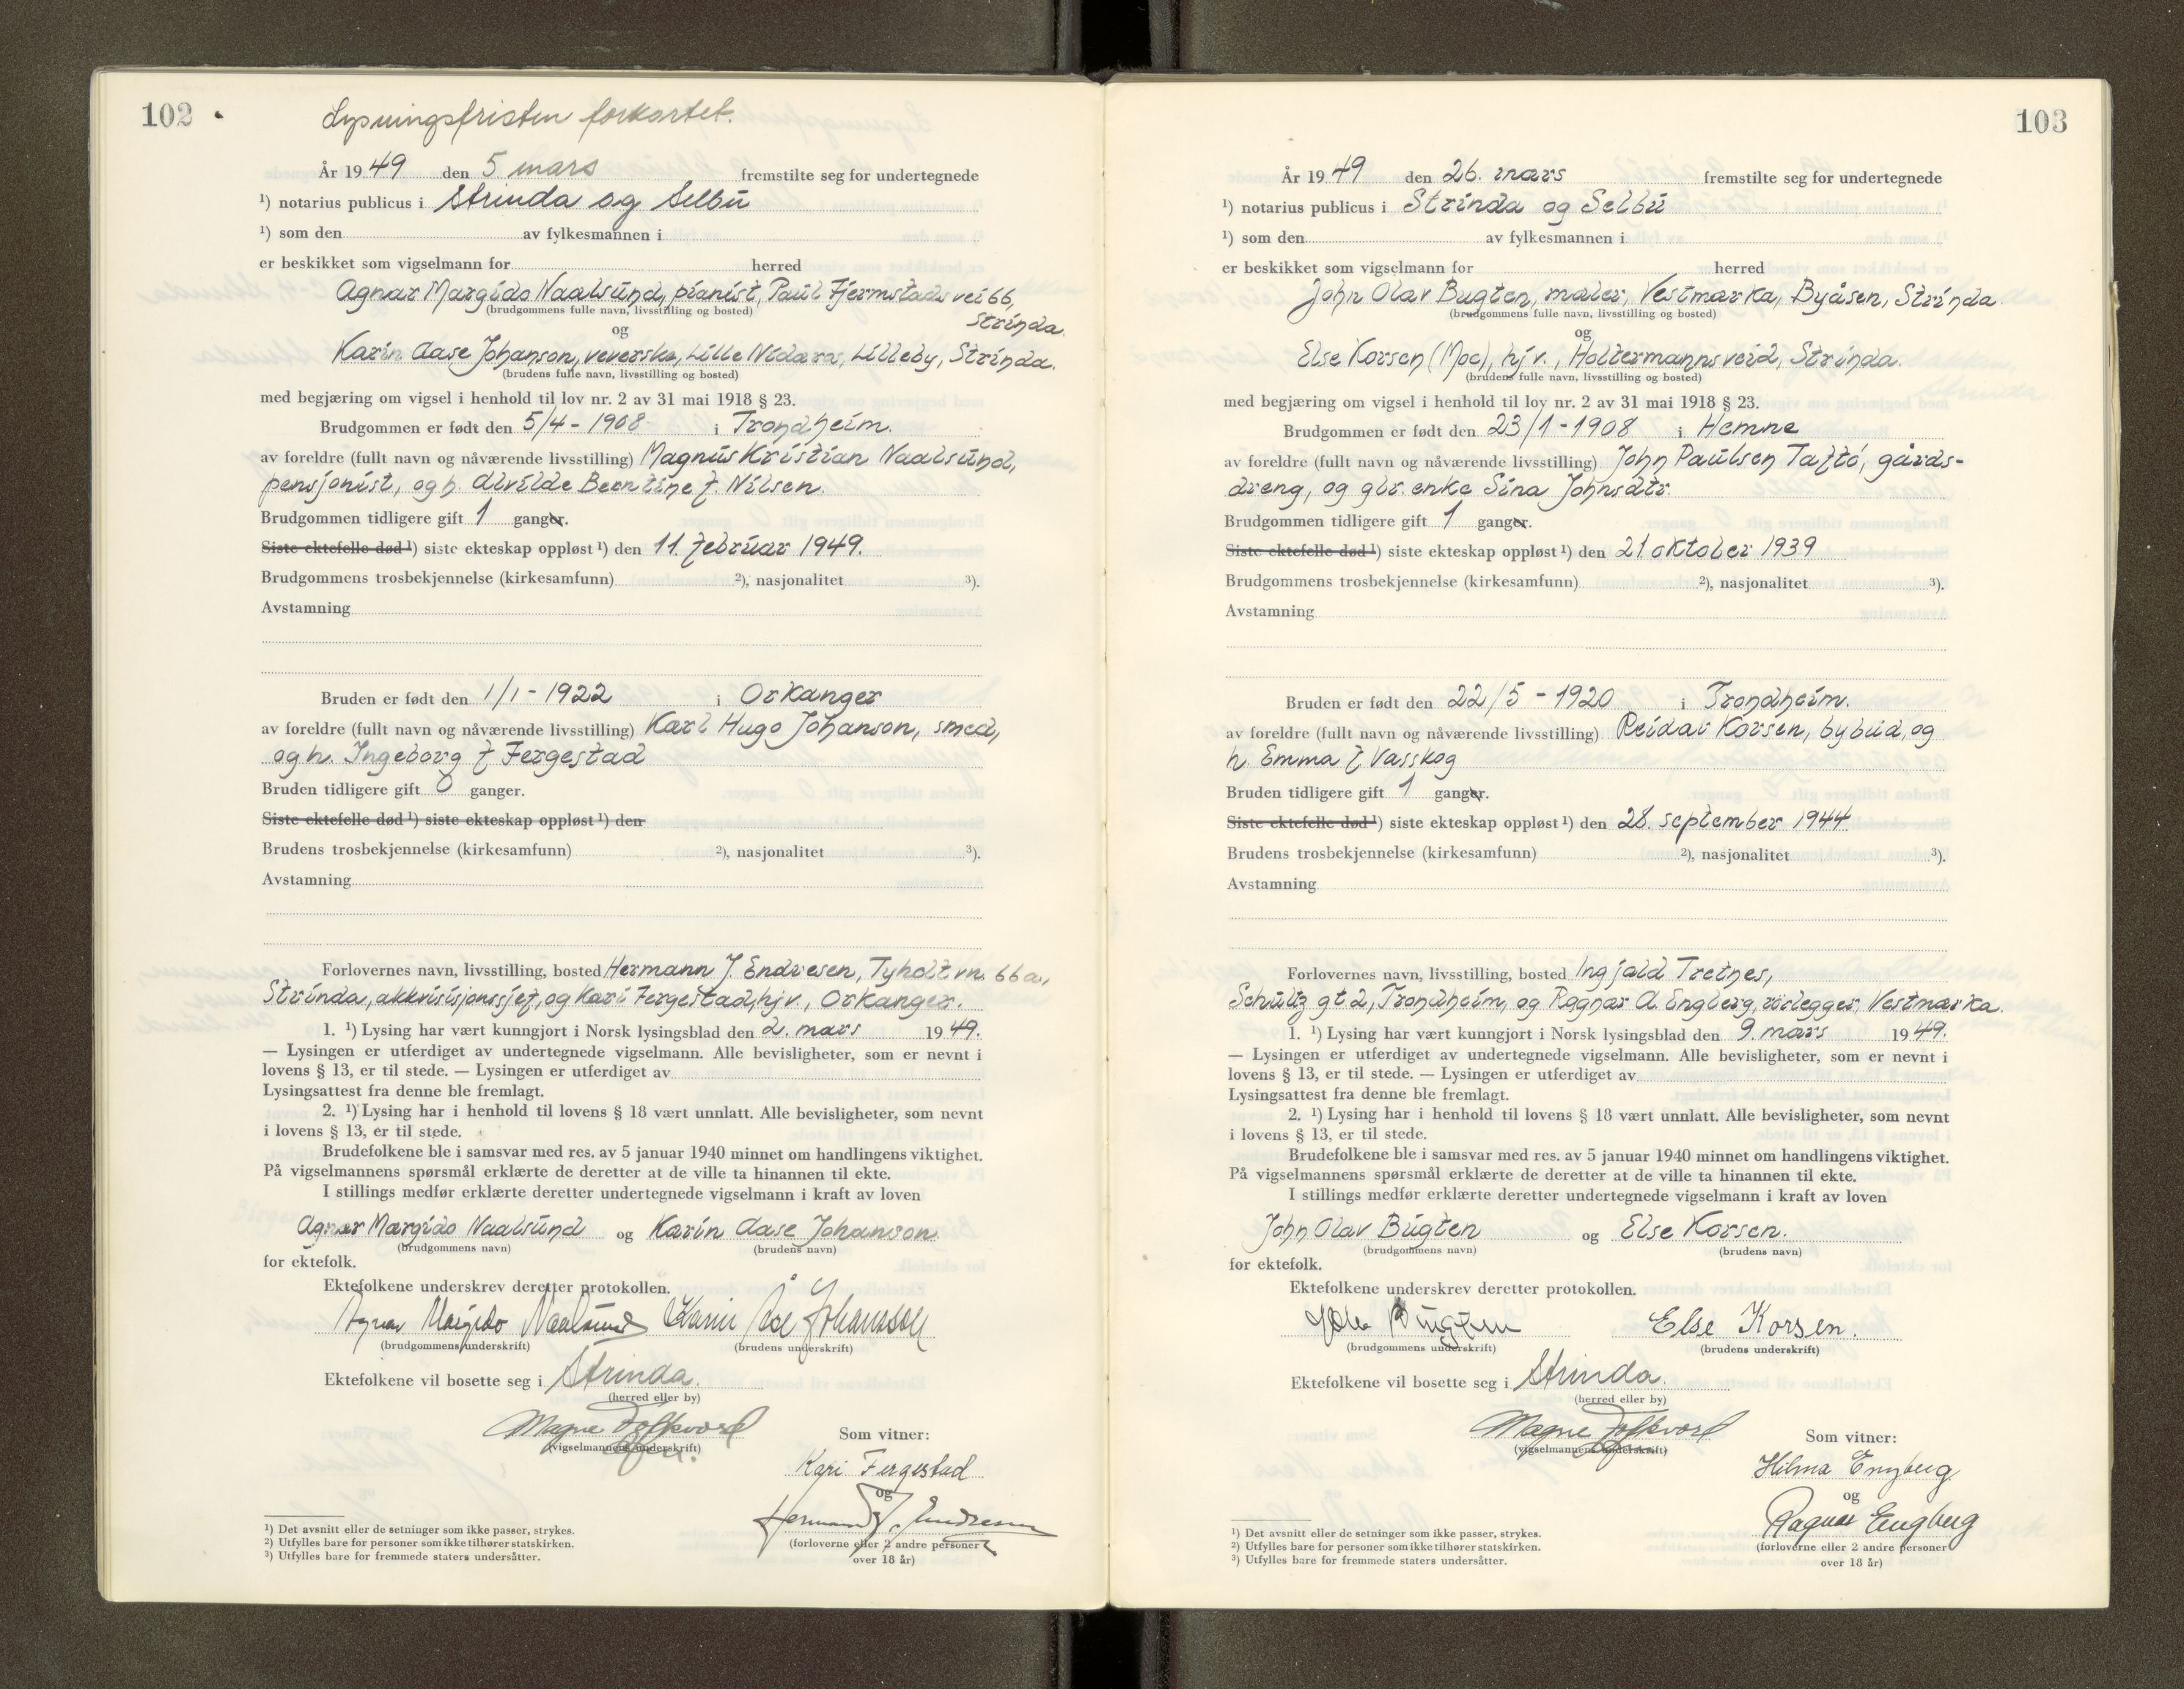 102
Lysningsfristen forkortet.
År 1949 den 5 mars fremstilte seg for undertegnede
¹) notarius publicus i Strinda og Selbu
¹) som den av fylkesmannen i
er beskikket som vigselmann for herred
Agnar Margido Naalsund, pianist, Paul Fjermstads vei 66,
(brudgommens fulle navn, livsstilling og bosted)
Strinda.
og
Karin Aase Johanson, veverske, Lille Nidarø, Lilleby, Strinda.
(brudens fulle navn, livsstilling og bosted)
med begjæring om vigsel i henhold til lov nr. 2 av 31 mai 1918 § 23.
Brudgommen er født den 5/4 - 1908 i Trondheim.
av foreldre (fullt navn og nåværende livsstilling) Magnus Kristian Naalsund,
pensjonist, og h. Alvilde Berntine f. Nilsen.
Brudgommen tidligere gift 1 ganger.
Siste ektefelle død ¹) siste ekteskap oppløst ¹) den 11. februar 1949.
Brudgommens trosbekjennelse (kirkesamfunn) ²), nasjonalitet ³).
Avstamning
Bruden er født den 1/1 - 1922 i Orkanger
av foreldre (fullt navn og nåværende livsstilling) Karl Hugo Johanson, smed,
og h. Ingeborg f Fergestad
Bruden tidligere gift 0 ganger.
Siste ektefelle død ¹) siste ekteskap oppløst ¹) den
Brudens trosbekjennelse (kirkesamfunn) ²), nasjonalitet ³).
Avstamning
Forlovernes navn, livsstilling, bosted Hermann J. Endresen, Tyholt vn. 66a,
Strinda, akkvisisjonssjef, og Kari Fergestad, hjv., Orkanger.
1. ¹) Lysing har vært kunngjort i Norsk lysingsblad den 2. mars 1949.
— Lysingen er utferdiget av undertegnede vigselmann. Alle bevisligheter, som er nevnt i
lovens § 13, er til stede. — Lysingen er utferdiget av
Lysingsattest fra denne ble fremlagt.
2. ¹) Lysing har i henhold til lovens § 18 vært unnlatt. Alle bevisligheter, som nevnt
i lovens § 13, er til stede.
Brudefolkene ble i samsvar med res. av 5 januar 1940 minnet om handlingens viktighet.
På vigselmannens spørsmål erklærte de deretter at de ville ta hinannen til ekte.
I stillings medfør erklærte deretter undertegnede vigselmann i kraft av loven
Agnar Margido Naalsund og Karin Aase Johanson.
(brudgommens navn) (brudens navn)
for ektefolk.
Ektefolkene underskrev deretter protokollen.
Agnar Margido Naalsund Karin Åse Johansson
(brudgommens underskrift) (brudens underskrift)
Ektefolkene vil bosette seg i Strinda.
(herred eller by)
Magne Folkvord
(vigselmannens underskrift)
Som vitner:
Kari Fergestad
og
Hermann J. Endresen
(forloverne eller 2 andre personer
over 18 år)
¹) Det avsnitt eller de setninger som ikke passer, strykes.
²) Utfylles bare for personer som ikke tilhører statskirken.
³) Utfylles bare for fremmede staters undersåtter.
103
År 1949 den 26. mars fremstilte seg for undertegnede
¹) notarius publicus i Strinda og Selbu
¹) som den av fylkesmannen i
er beskikket som vigselmann for herred
John Olav Bugten, maler, Vestmarka, Byåsen, Strinda
(brudgommens fulle navn, livsstilling og bosted)
og
Else Korsen (Moe), hjv., Holtermannsveid, Strinda.
(brudens fulle navn, livsstilling og bosted)
med begjæring om vigsel i henhold til lov nr. 2 av 31 mai 1918 § 23.
Brudgommen er født den 23/1 - 1908 i Hemne
av foreldre (fullt navn og nåværende livsstilling) John Paulsen Taftö, gårds-
dreng, og gbr. enke Sina Johnsdtr.
Brudgommen tidligere gift 1 ganger.
Siste ektefelle død ¹) siste ekteskap oppløst ¹) den 21 oktober 1939
Brudgommens trosbekjennelse (kirkesamfunn) ²), nasjonalitet ³).
Avstamning
Bruden er født den 22/5 - 1920 i Trondheim.
av foreldre (fullt navn og nåværende livsstilling) Reidar Korsen, bybud, og
h. Emma f Vasskog
Bruden tidligere gift 1 ganger.
Siste ektefelle død ¹) siste ekteskap oppløst ¹) den 28. september 1944
Brudens trosbekjennelse (kirkesamfunn) ²), nasjonalitet ³).
Avstamning
Forlovernes navn, livsstilling, bosted Ingjald Tretnes,
Schultz gt 2, Trondheim, og Ragnar A. Engberg, rörlegger, Vestmarka.
1. ¹) Lysing har vært kunngjort i Norsk lysingsblad den 9. mars 1949.
— Lysingen er utferdiget av undertegnede vigselmann. Alle bevisligheter, som er nevnt i
lovens § 13, er til stede. — Lysingen er utferdiget av
Lysingsattest fra denne ble fremlagt.
2. ¹) Lysing har i henhold til lovens § 18 vært unnlatt. Alle bevisligheter, som nevnt
i lovens § 13, er til stede.
Brudefolkene ble i samsvar med res. av 5 januar 1940 minnet om handlingens viktighet.
På vigselmannens spørsmål erklærte de deretter at de ville ta hinannen til ekte.
I stillings medfør erklærte deretter undertegnede vigselmann i kraft av loven
John Olav Bugten og Else Korsen.
(brudgommens navn) (brudens navn)
for ektefolk.
Ektefolkene underskrev deretter protokollen.
John Bugten Else Korsen.
(brudgommens underskrift) (brudens underskrift)
Ektefolkene vil bosette seg i Strinda.
(herred eller by)
Magne Folkvord
(vigselmannens underskrift)
Som vitner:
Hilma Engberg
og
Ragnar Engberg
(forloverne eller 2 andre personer
over 18 år)
¹) Det avsnitt eller de setninger som ikke passer, strykes.
²) Utfylles bare for personer som ikke tilhører statskirken.
³) Utfylles bare for fremmede staters undersåtter.